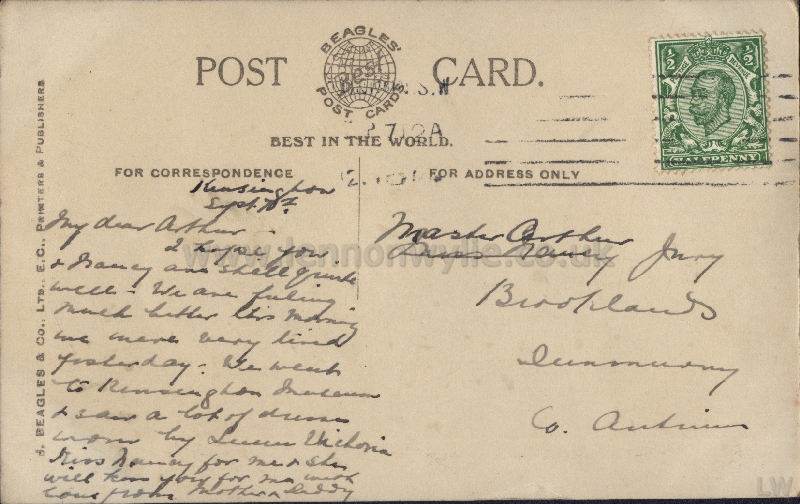 BEAGLES'
Best
POST CARDS
POST CARD.
BEST IN THE WORLD.
FOR CORRESPONDENCE
FOR ADDRESS ONLY
½ ½
HALFPENNY
J. BEAGLES & CO., LTD., E.C., PRINTERS & PUBLISHERS
www.lennonwylie.co.uk
Kensington
Sept
My dear Arthur -
I hope you
& Nancy are still quite
well - We are feeling
much better this morning
we were very tired
yesterday. We went
to Kensington Museum
& saw a lot of dresses
worn by Queen Victoria
Kiss Nancy for me & she
will kiss you for me with
love from Mother & Daddy
Master Arthur
Miss Nancy Jury
Brooklands
Dunmurry
Co. Antrim
LW